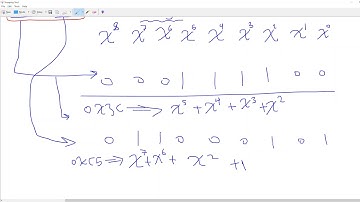 x⁸ x⁷ x⁶ x⁵ x⁴ x³ x² x¹ x⁰
0 0 0 1 1 1 1 0 0
0x3C ⟹ x⁵ + x⁴ + x³ + x²
0 1 1 0 0 0 1 0 1
0xC5 ⟹ x⁷ + x⁶ + x² + 1